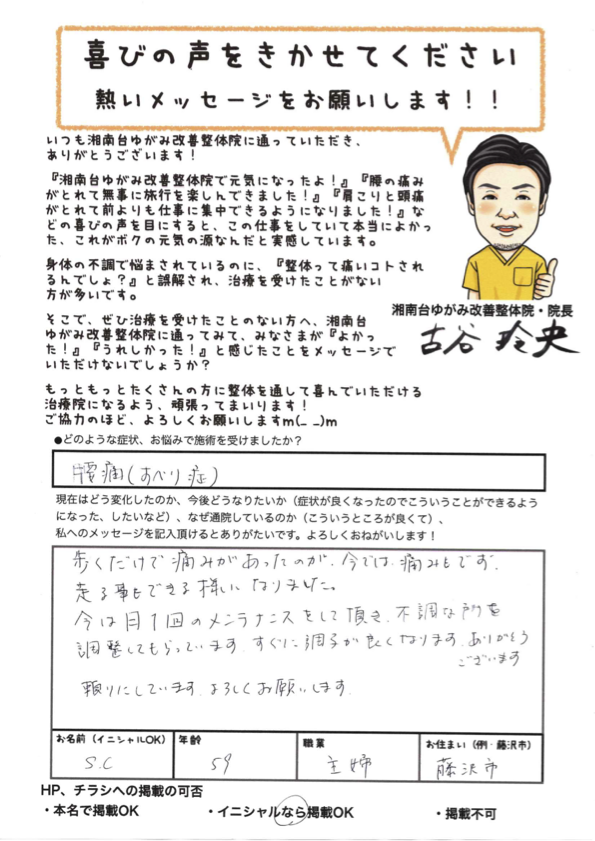 喜びの声をきかせてください
熱いメッセージをお願いします！！
いつも湘南台ゆがみ改善整体院に通っていただき、
ありがとうございます！
『湘南台ゆがみ改善整体院で元気になったよ！』『腰の痛み
がとれて無事に旅行を楽しんできました！』『肩こりと頭痛
がとれて前よりも仕事に集中できるようになりました！』な
どの喜びの声を目にすると、この仕事をしていて本当によかっ
た、これがボクの元気の源なんだと実感しています。
身体の不調で悩まされているのに、『整体って痛いコトされ
るんでしょ？』と誤解され、治療を受けたことがない
方が多いです。
そこで、ぜひ治療を受けたことのない方へ、湘南台
ゆがみ改善整体院に通ってみて、みなさまが『よかっ
た！』『うれしかった！』と感じたことをメッセージで
いただけないでしょうか？
もっともっとたくさんの方に整体を通して喜んでいただける
治療院になるよう、頑張ってまいります！
ご協力のほど、よろしくお願いしますm(_ _)m
湘南台ゆがみ改善整体院・院長
古谷 玲央
●どのような症状、お悩みで施術を受けましたか？
腰痛(すべり症)
現在はどう変化したのか、今後どうなりたいか（症状が良くなったのでこういうことができるよう
になった、したいなど）、なぜ通院しているのか（こういうところが良くて）、
私へのメッセージを記入頂けるとありがたいです。よろしくおねがいします！
歩くだけで痛みがあったのが、今では、痛みもです、
走る事もできる様になりました。
今は月1回のメンテナンスをして頂き、不調な所を
調整してもらっています。すぐに調子が良くなります。ありがとう
ございます
頼りにしています。よろしくお願いします。
お名前（イニシャルOK）
年齢
職業
お住まい（例・藤沢市）
S.C
59
主婦
藤沢市
HP、チラシへの掲載の可否
・本名で掲載OK
・イニシャルなら掲載OK
・掲載不可